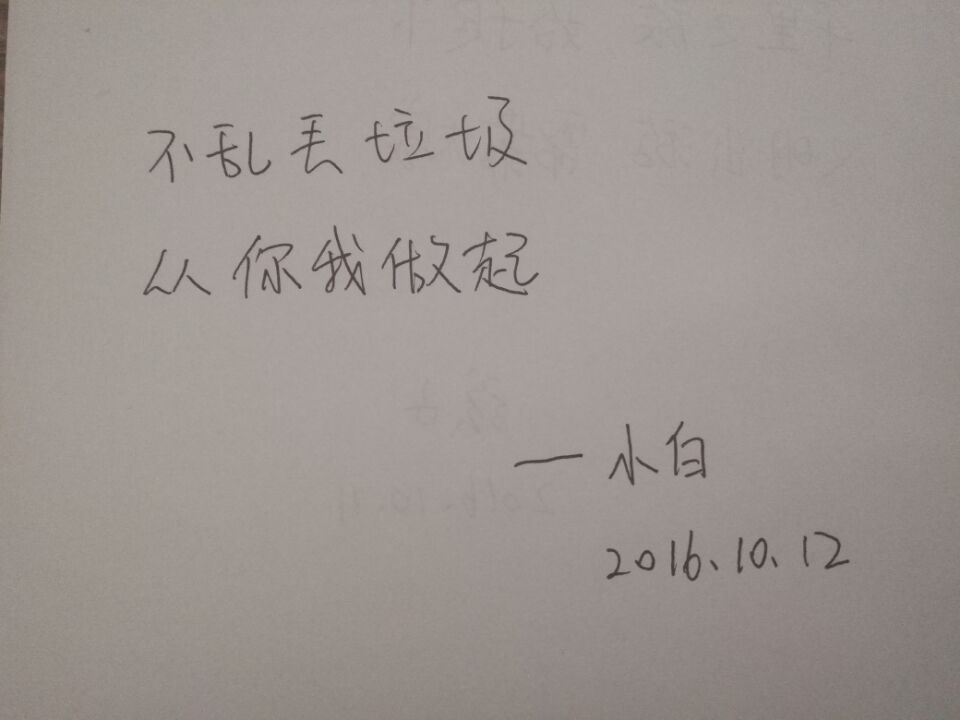 不乱丢垃圾
从你我做起
—小白
2016.10.12